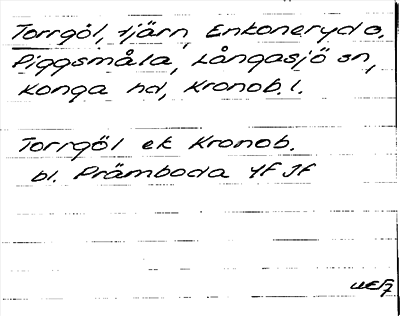 Torrgöl, tjärn, Enkoneryd o.
Piggsmåla, Långasjö sn,
Konga hd, Kronob. l.
Torrgöl ek Kronob.
bl. Pråmboda YF JF